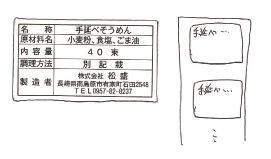 名称 手延べそうめん
原材料名 小麦粉、食塩、ごま油
内容量 40束
調理方法 別記載
製造者 株式会社 松盛
長崎県南島原市有家町石田2548
TEL0957-82-8237
手延べ…
手延べ…